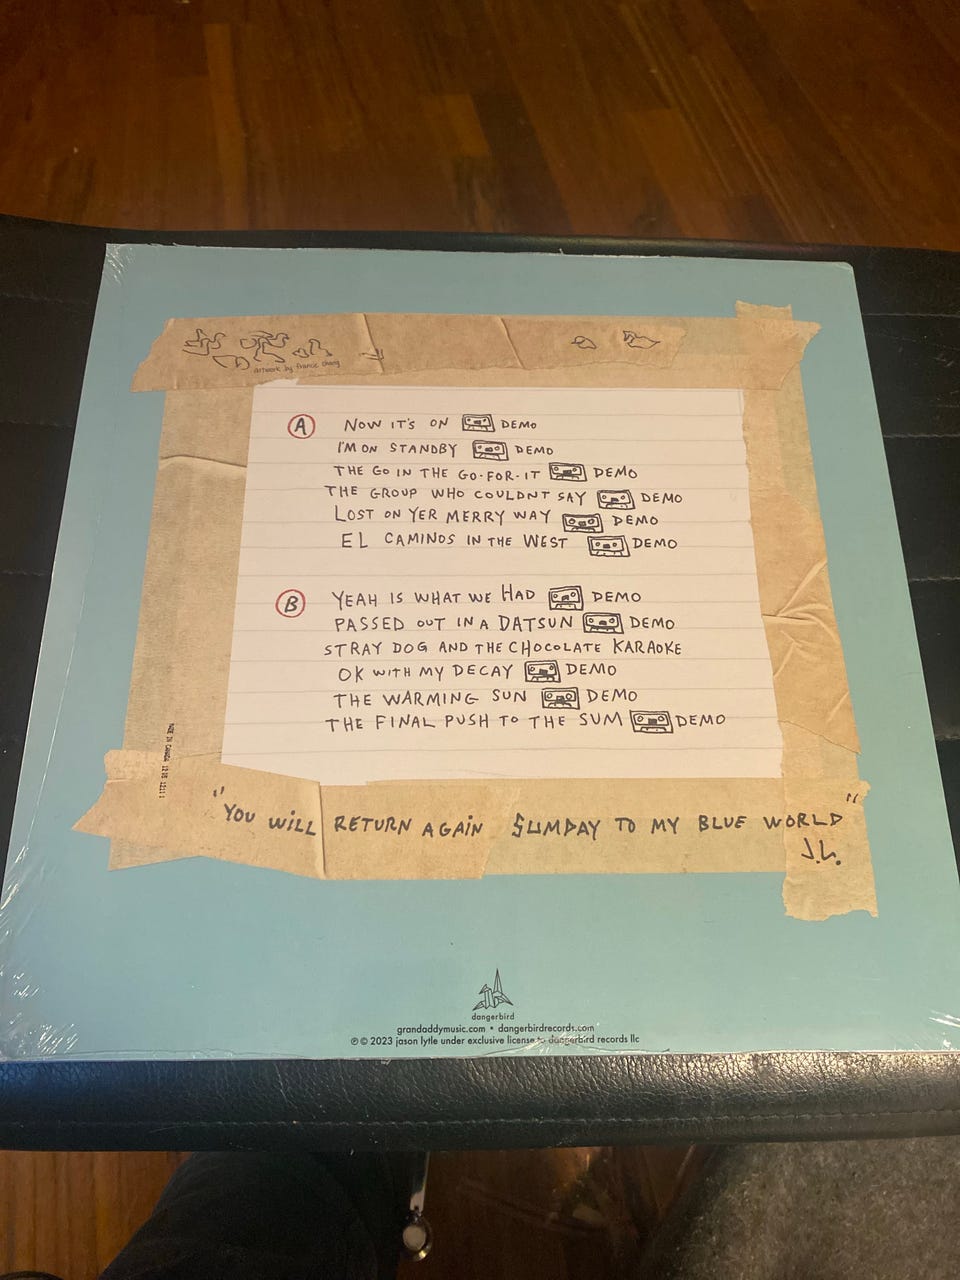 artwork by france chang
A NOW IT'S ON DEMO
I'M ON STANDBY DEMO
THE GO IN THE GO-FOR-IT DEMO
THE GROUP WHO COULDNT SAY DEMO
LOST ON YER MERRY WAY DEMO
EL CAMINOS IN THE WEST DEMO
B YEAH IS WHAT WE HAD DEMO
PASSED OUT IN A DATSUN DEMO
STRAY DOG AND THE CHOCOLATE KARAOKE
OK WITH MY DECAY DEMO
THE WARMING SUN DEMO
THE FINAL PUSH TO THE SUM DEMO
MADE IN CANADA
"YOU WILL RETURN AGAIN SUMDAY TO MY BLUE WORLD"
J.L.
dangerbird
grandaddymusic.com • dangerbirdrecords.com
℗ © 2023 jason lytle under exclusive license to dangerbird records llc